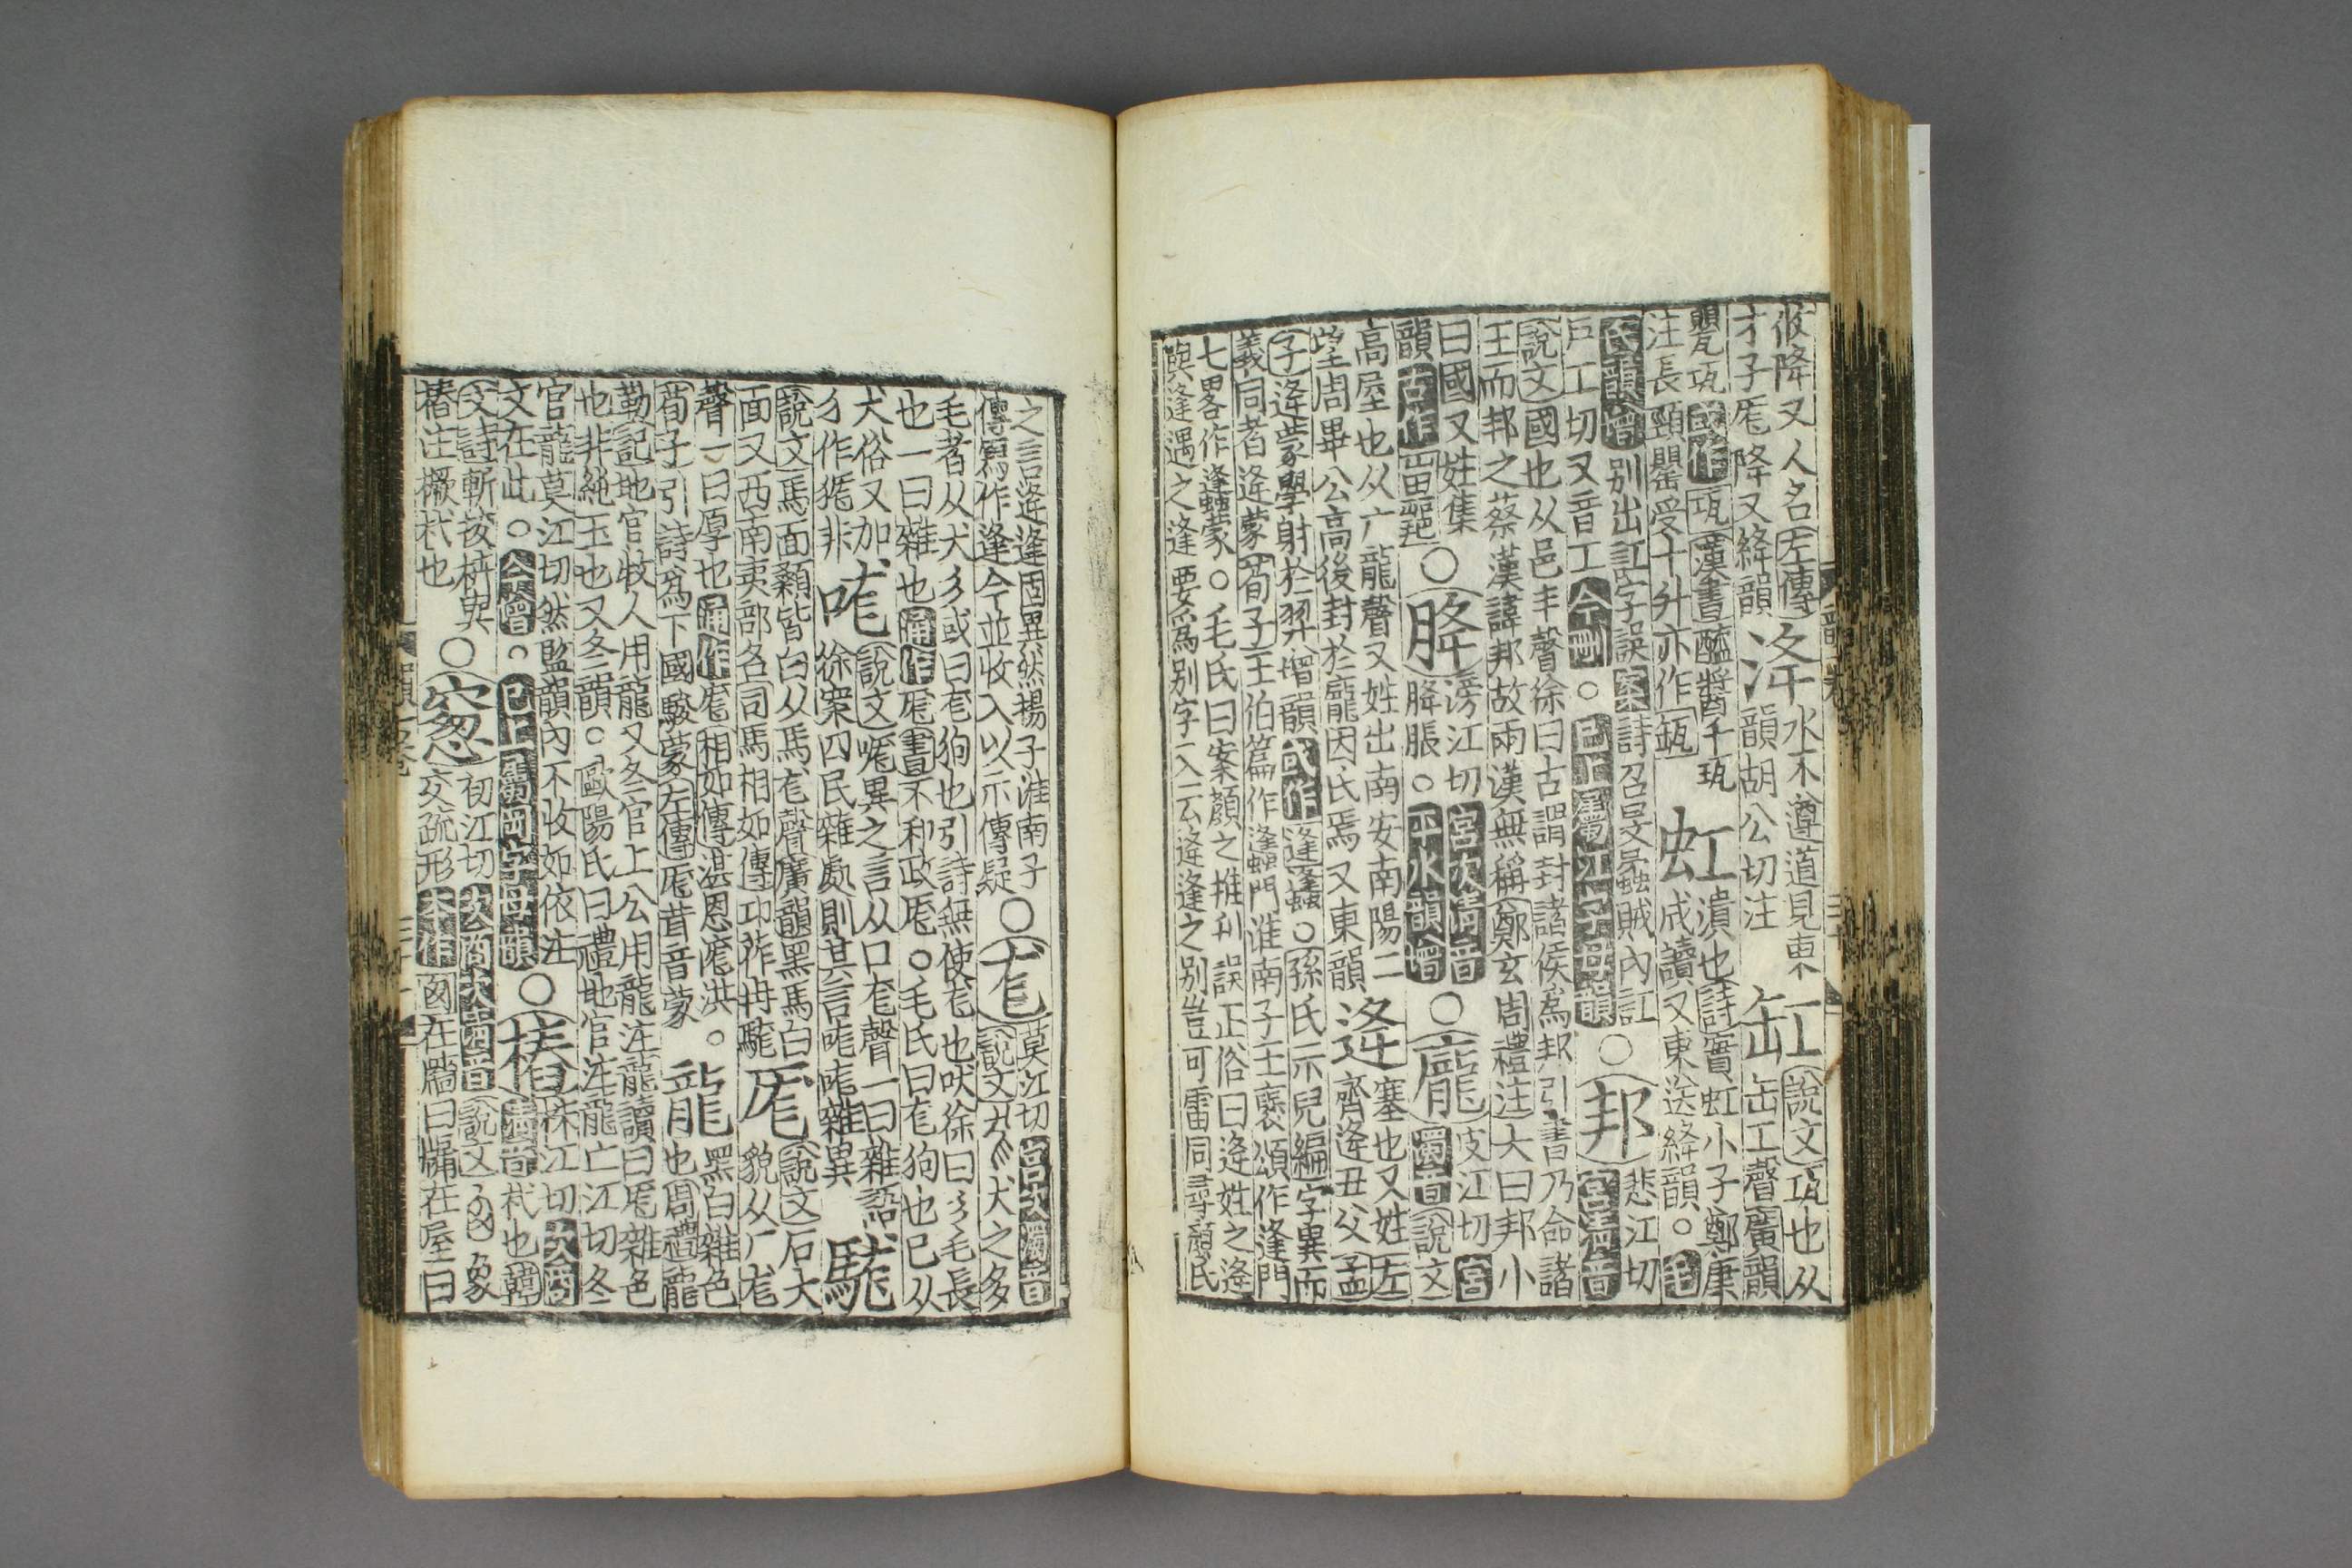 攸降又人名左傳
才子厖降又絳韻
洚
水不遵道見東
韻胡公切注
缸
缶
說文瓨也从
缶工聲廣韻
甖瓨或作瓨漢書醯醬千瓨
注長頸罌受十升亦作瓨
虹
潰也詩實虹小子鄭康
成讀又東送絳韻○毛
氏韻增別出訌字誤案詩召旻蟊賊內訌
戶工切又音工今刪○已上屬江字母韻
○邦
悲江切
宮清音
說文國也从邑丰聲徐曰古謂封諸侯為邦引書乃命諸
王而邦之蔡漢諱邦故兩漢無稱鄭玄周禮注大曰邦小
曰國又姓集
韻古作
○胮
滂江切宮次清音
胮脹○平水韻增
○龐
皮江切宮
濁音說文
高屋也从广龍聲又姓出南安南陽二
望周畢公高後封於龐因氏焉又東韻
逄
塞也又姓左
齊逄丑父孟
子逄蒙學射於羿增韻或作逢蠭○孫氏示兒編字異而
義同者逄蒙荀子王伯篇作逢蠭門淮南子王襃頌作逢門
七畧作逢蠭蒙○毛氏曰案顏之推刋誤正俗曰逄姓之逄
與逢遇之逢要為別字入云逄逢之別豈可雷同尋顏氏
之言逄逢固異然揚子淮南子
傳寫作逢今並收入以示傳疑
○尨
莫江切宮次濁音
說文犬之多
毛者从犬彡或曰尨狗也引詩無使尨也吠徐曰彡毛長
也一曰雜也通作厖書不利政厖○毛氏曰尨狗也已从
犬俗又加
犭作狵非
咙
說文咙異之言从口尨聲一曰雜語
徐案四民雜處則其言咙咙雜異
駹
說文馬面顙皆白从馬尨聲廣韻黑馬白
面又西南夷部名司馬相如傳卭莋冉駹
厖
說文石大
貌从厂尨
聲一曰厚也通作庬相如傳湛恩庬洪○
荀子引詩為下國駿蒙左傳厖茸音蒙
龍
黑白雜色
也周禮龍
勒記地官牧人用龍又冬官上公用龍注龍讀曰厖雜色
也非純玉也又冬韻○歐陽氏曰禮地官注龍亡江切冬
官龍莫江切然監韻內不收如依注
文在此○今增○已上屬岡字母韻
○樁
株江切次商
清音杙也韓
文詩斬拔枿與
樁注橛杙也
○窻
初江切次商次清音說文
交疏形本作囪在牆曰牖在屋曰
囪象